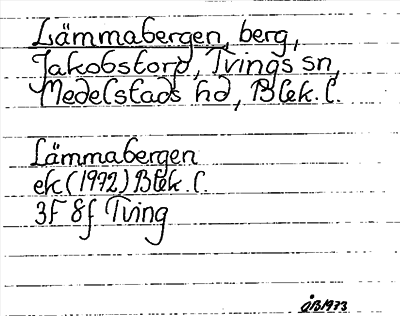 Lämmabergen, berg,
Jakobstorp, Tvings sn,
Medelstads hd, Blek. l.
Lämmabergen
ek (1972) Blek. l.
3F 8f Tving
ÅB1973